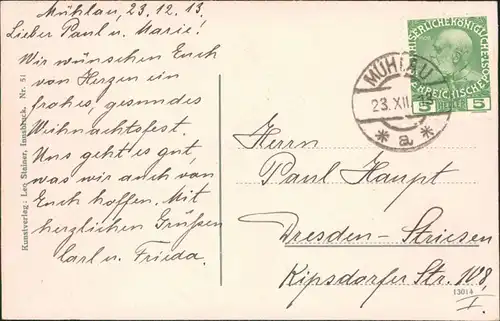 Mühlau, 23.12.13.
Lieber Paul u. Marie!
Wir wünschen Euch
von Herzen ein
frohes, gesundes
Weihnachtsfest.
Uns geht es gut,
was wir auch von
Euch hoffen. Mit
herzlichen Grüßen
Carl u. Frieda.
Kunstverlag: Leo Stainer, Innsbruck. Nr. 51
KAISERLICHE KÖNIGLICHE
ÖSTERREICHISCHE
5 HELLER 5
MÜHLAU
23. XII
* a *
Herrn
Paul Haupt
Dresden-Striesen
Kipsdorfer Str. 108,
I.
13014